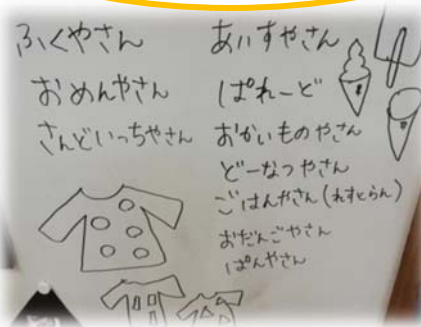 ふくやさん
おめんやさん
さんどいっちやさん
あいすやさん
ぱれーど
おかいものやさん
どーなつやさん
ごはんやさん(れすとらん)
おだんごやさん
ぱんやさん